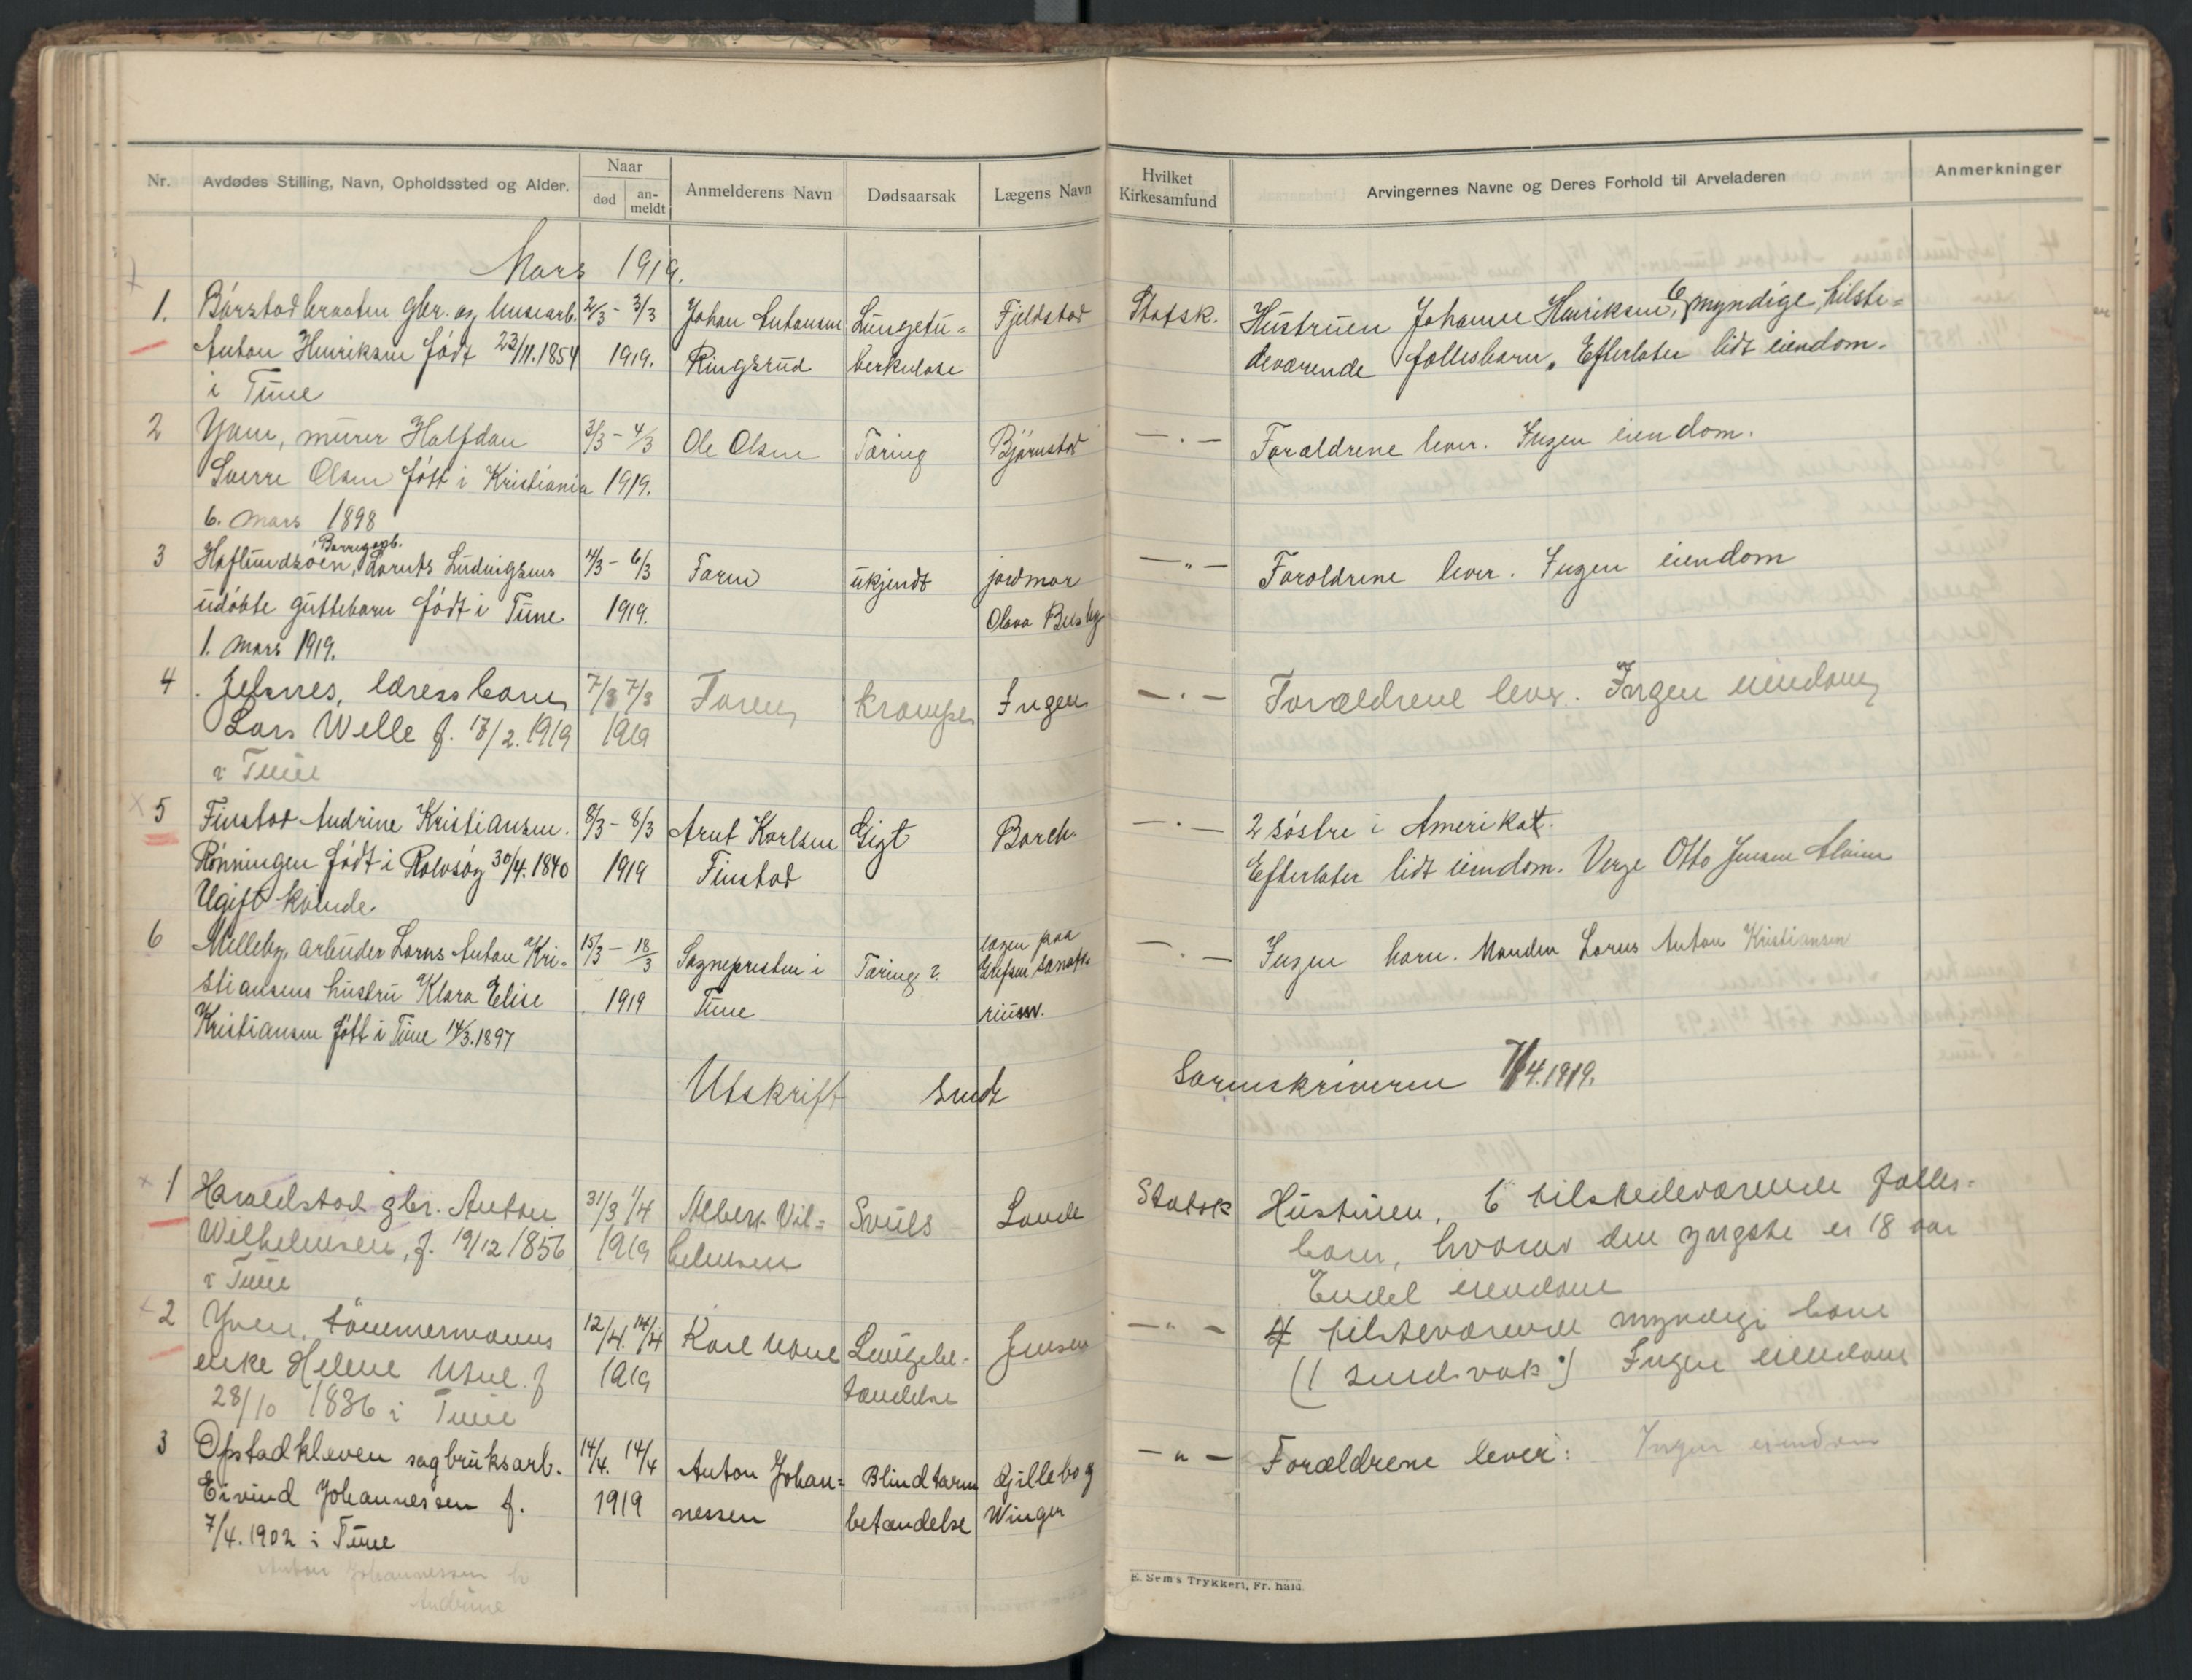 Nr.
Avdødes Stilling, Navn, Opholdssted og Alder.
Naar
død
an-
meldt
Anmelderens Navn
Dødsaarsak
Lægens Navn
Hvilket
Kirkesamfund
Arvingernes Navne og Deres Forhold til Arveladeren
Anmerkninger
Mars 1919.
1. Børstadbraaten gbr. og husearb. 2/3 - 3/3 Johan Antonsen Lungetu= Fjeldstad Statsk. Hustruen Johanne Henriksen, 6 myndige, tilste=
Anton Henriksen født 23/11.1854 1919. Ringsrud berkulose deværende fællesbarn. Efterlater lidt eiendom.
i Tune
2 Yven, murer Halfdan 3/3 - 4/3 Ole Olsen Tæring Bjørnstad — . — Forældrene lever. Ingen eiendom.
Sverre Olsen født i Kristiania 1919.
6. mars 1898
3 Haflundsøen, Borregaarb. Lornts Ludvigsens 4/3 - 6/3 Faren ukjendt jordmor — " — Forældrene lever. Ingen eiendom
udøbte guttebarn født i Tune 1919. Olava Busby
1. mars 1919.
4 Jelsnes, læress barn 7/3 7/3 Faren krampe Ingen — . — Forældrene lever. Ingen eiendom
Lars Welle f. 17/2.1919 1919
i Tune
5 Finstad Andrine Kristiansen. 8/3 - 8/3 Arnt Karlsen Gigt Borch. — . — 2 søstre i Amerika.
Rønningen født i Rolvsøy 30/4.1840 1919 Finstad Efterlater lidt eiendom. Verge Otto Jensen
Ugift kvinde.
6 Milleby, arbeider Lorns Anton Kri- 15/3 - 18/3 Sognepresten i Tæring? lægen paa — . — Ingen barn. Manden Lorns Anton Kristiansen
stiansens hustru Klara Elise 1919 Tune Grefsen sanato-
Kristiansen født i Tune 14/3.1897 rium.
Utskrift sendt Sorenskriveren 7/4.1919.
1 Haraldstad gbr. Anton 31/3 1/4 Albert Vil= Svuls Lande Statsk Hustruen, 6 tilstedeværende fælles-
Wilhelmsen, f. 19/12 1856 1919 helmsen barn, hvorav den yngste er 18 aar
i Tune Endel eiendom
2 Yven, tømmermanns 12/4. 14/4 Karl Utne Lungebe- Jensen — " — 4 tilsteværende myndige barn
enke Helene Utne. f 1919 tændelse (1 sindsvak) Ingen eiendom
28/10 1836 i Tune
3 Opstadkleven sagbruksarb. 14/4. 14/4 Anton Johan= Blindtarm Gjillebo og — " — Forældrene lever: Ingen eiendom
Eivind Johannessen f. 1919 nessen betændelse Winger
7/4.1902 i Tune
Anton Johannessen
Andrine
E. Sem's Trykkeri, Fr.hald.